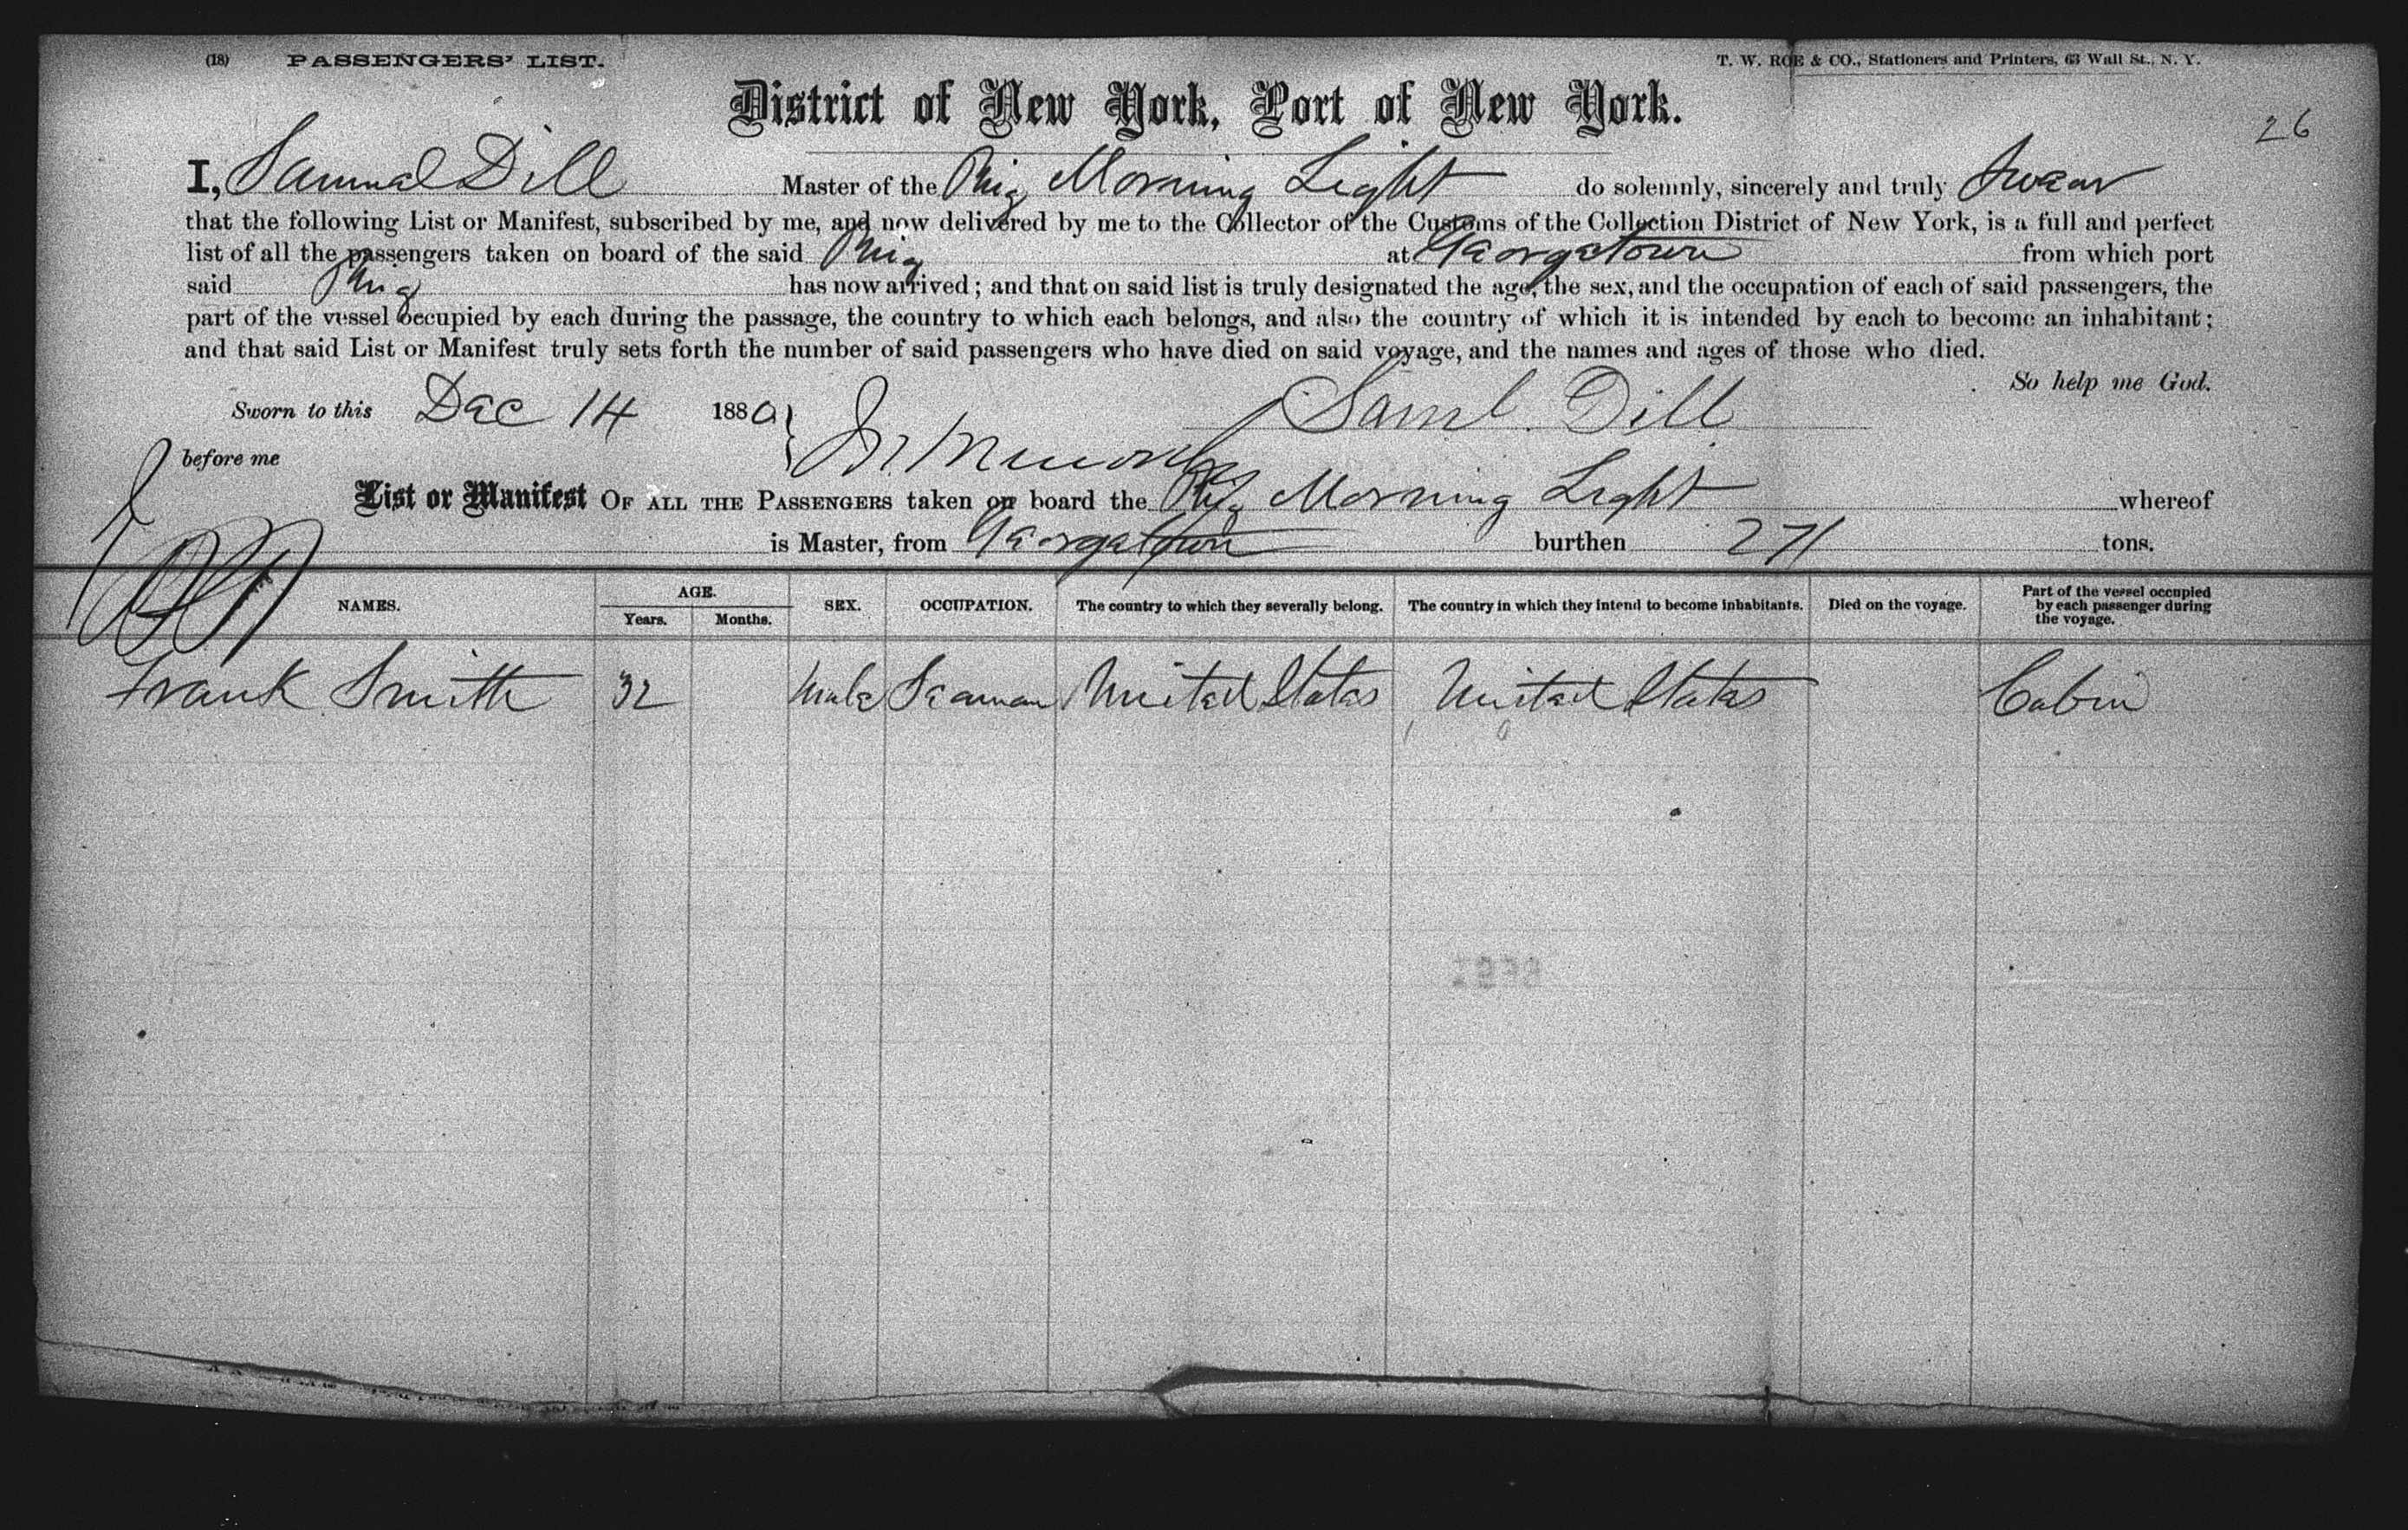 (18) PASSENGERS' LIST. T. W. ROE & CO., Stationers and Printers, 63 Wall St., N. Y.
District of New York, Port of New York.
26
I, Samual Dill Master of the Brig Morning Light do solemnly, sincerely and truly Swear
that the following List or Manifest, subscribed by me, and now delivered by me to the Collector of the Customs of the Collection District of New York, is a full and perfect
list of all the passengers taken on board of the said Brig at Georgetown from which port
said Brig has now arrived; and that on said list is truly designated the age, the sex, and the occupation of each of said passengers, the
part of the vessel occupied by each during the passage, the country to which each belongs, and also the country of which it is intended by each to become an inhabitant;
and that said List or Manifest truly sets forth the number of said passengers who have died on said voyage, and the names and ages of those who died.
So help me God.
Sworn to this Dec 14 1880 Saml. Dill
before me
List or Manifest OF ALL THE PASSENGERS taken on board the Brig Morning Light whereof
is Master, from Georgetown burthen 271 tons.
NAMES. AGE. Years. Months. SEX. OCCUPATION. The country to which they severally belong. The country in which they intend to become inhabitants. Died on the voyage. Part of the vessel occupied by each passenger during the voyage.
Frank Smith 32 Male Seaman United States United States Cabin